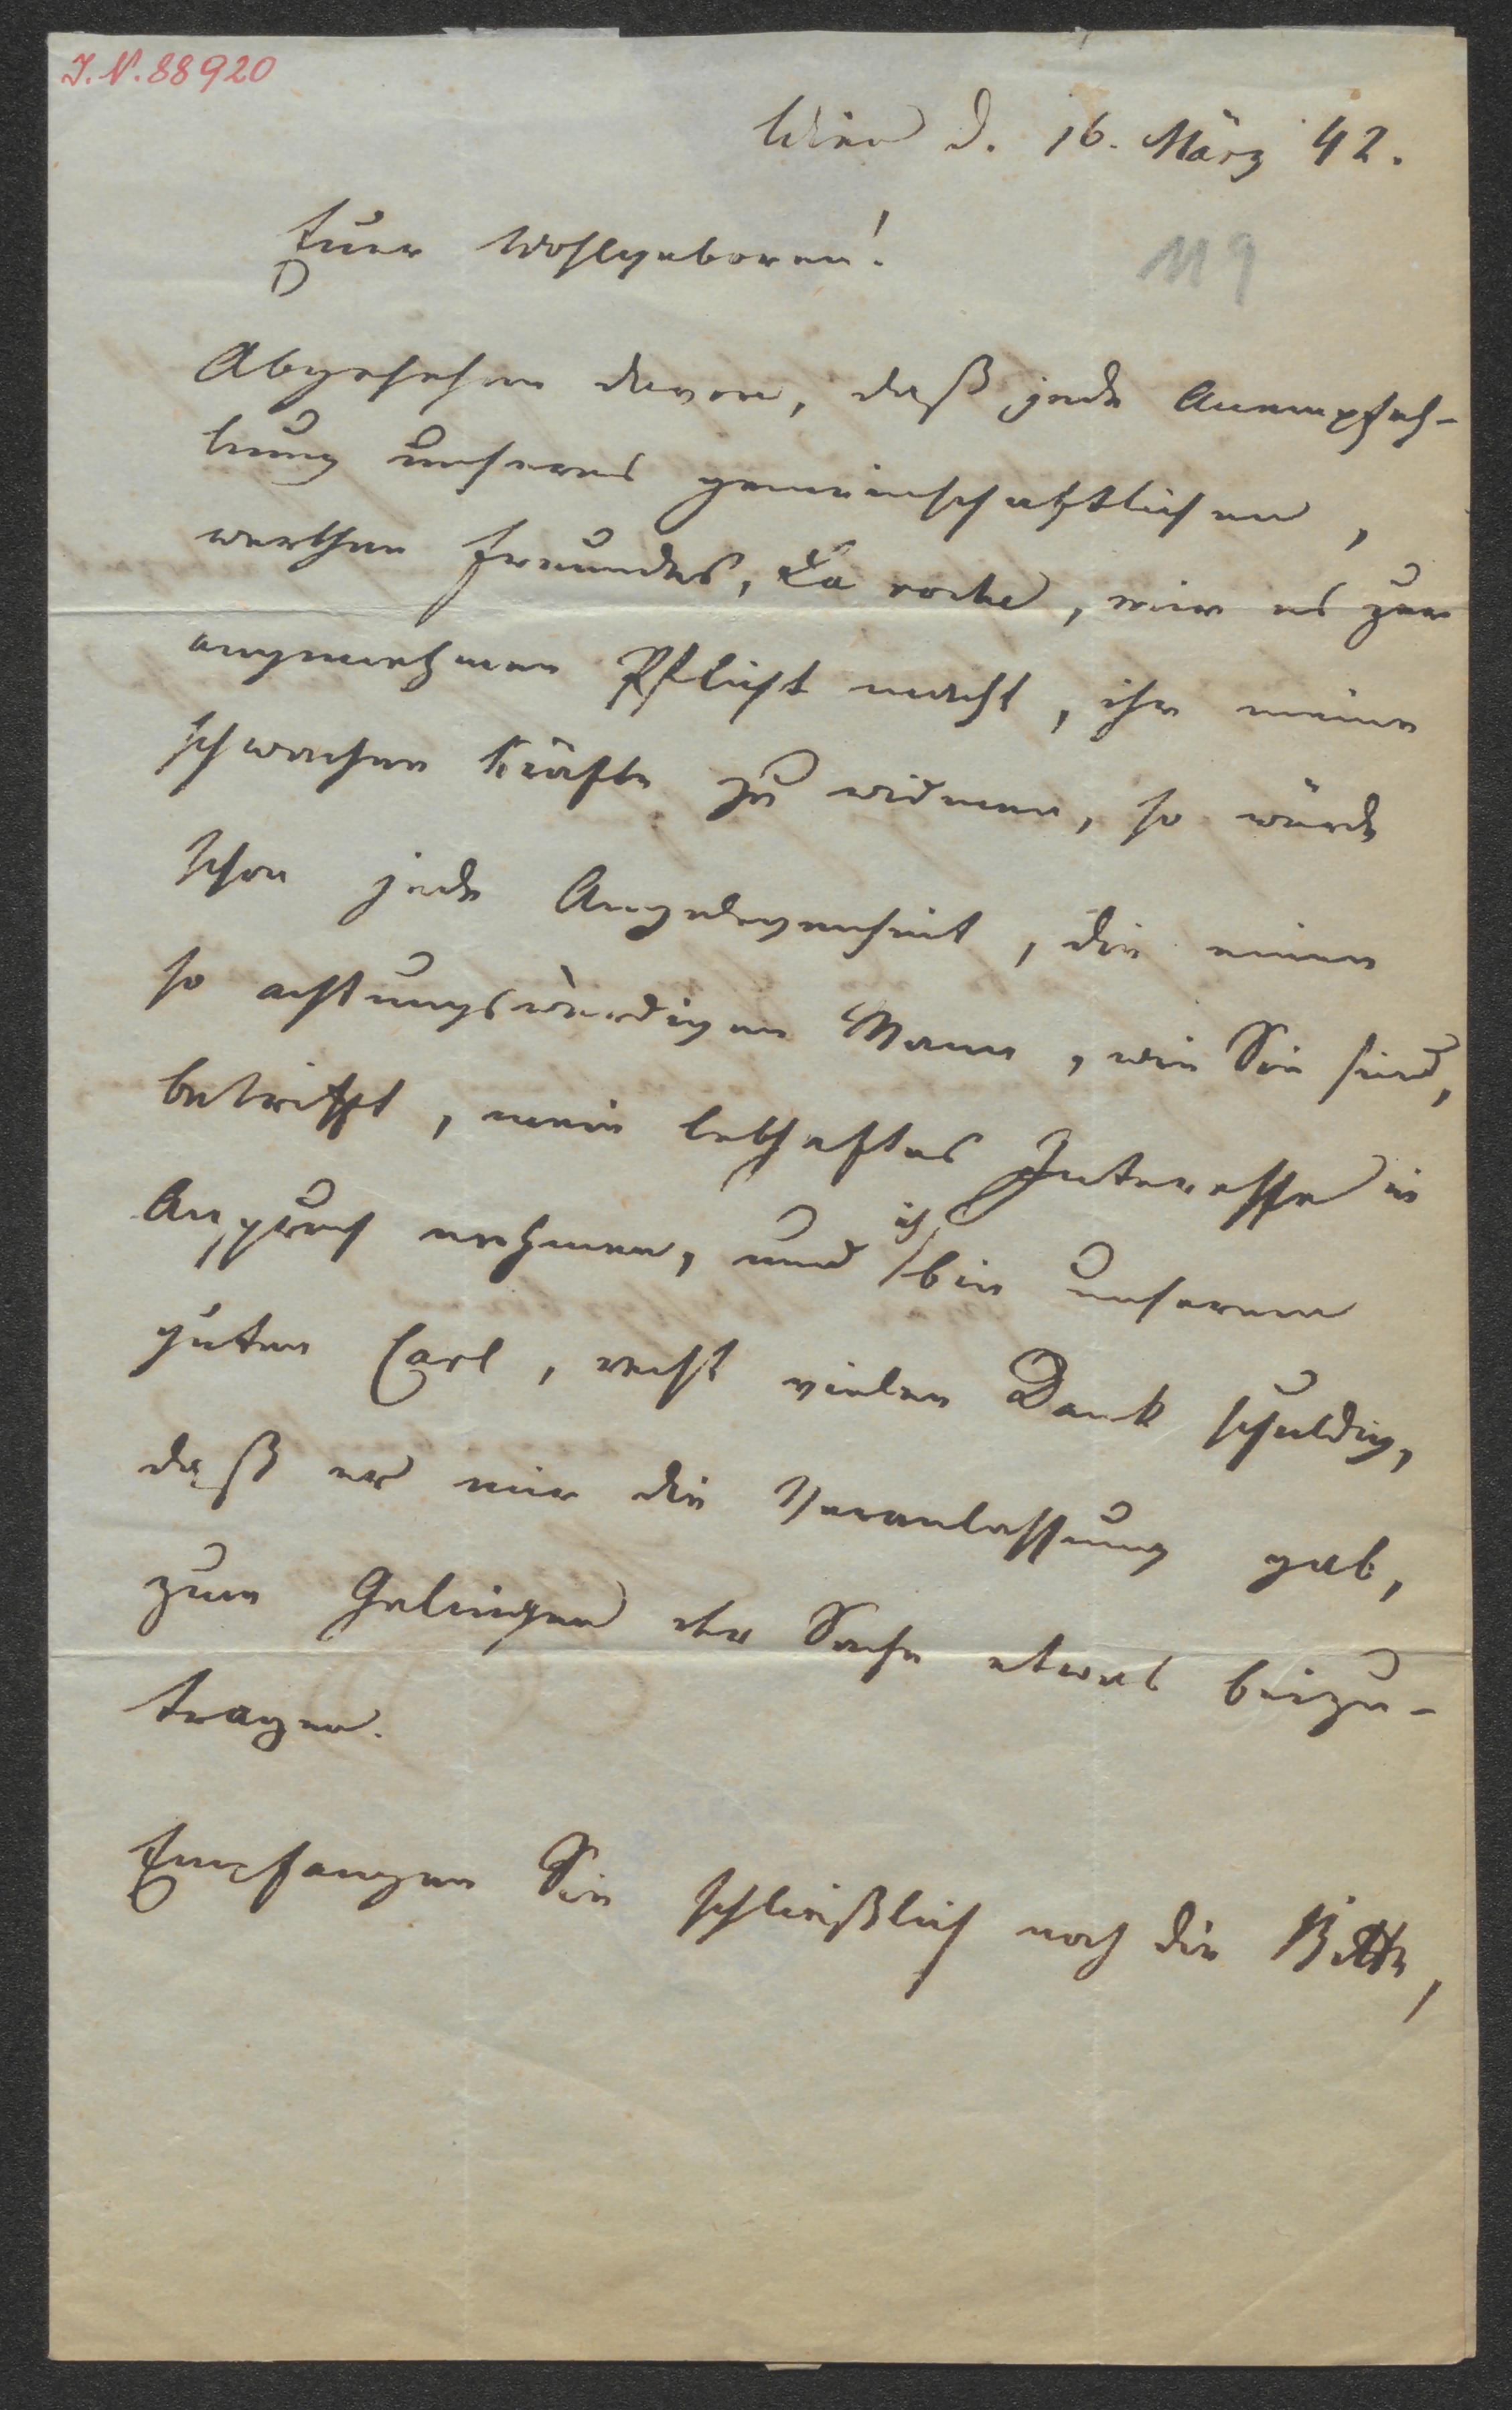 I. N. 88920
Wien d. 16. März 42.
Euer Wohlgeboren!
119
Abgesehen davon, daß jede Anempfeh-
lung unseres gemeinschaftlichen,
werthen Freundes, La roche, mir es zur
angenehmen Pflicht macht, ihr meine
schwachen Kräfte zu widmen, so würde
schon jede Angelegenheit, die einen
so achtungswürdigen Mann, wie Sie sind,
betrifft, mein lebhaftes Interesse in
Anspruch nehmen, und ich bin unserem
guten Carl, recht vielen Dank schuldig,
daß er mir die Veranlassung gab,
zum Gelingen der Sache etwas beizu-
tragen.
Empfangen Sie schließlich noch die Bitte,